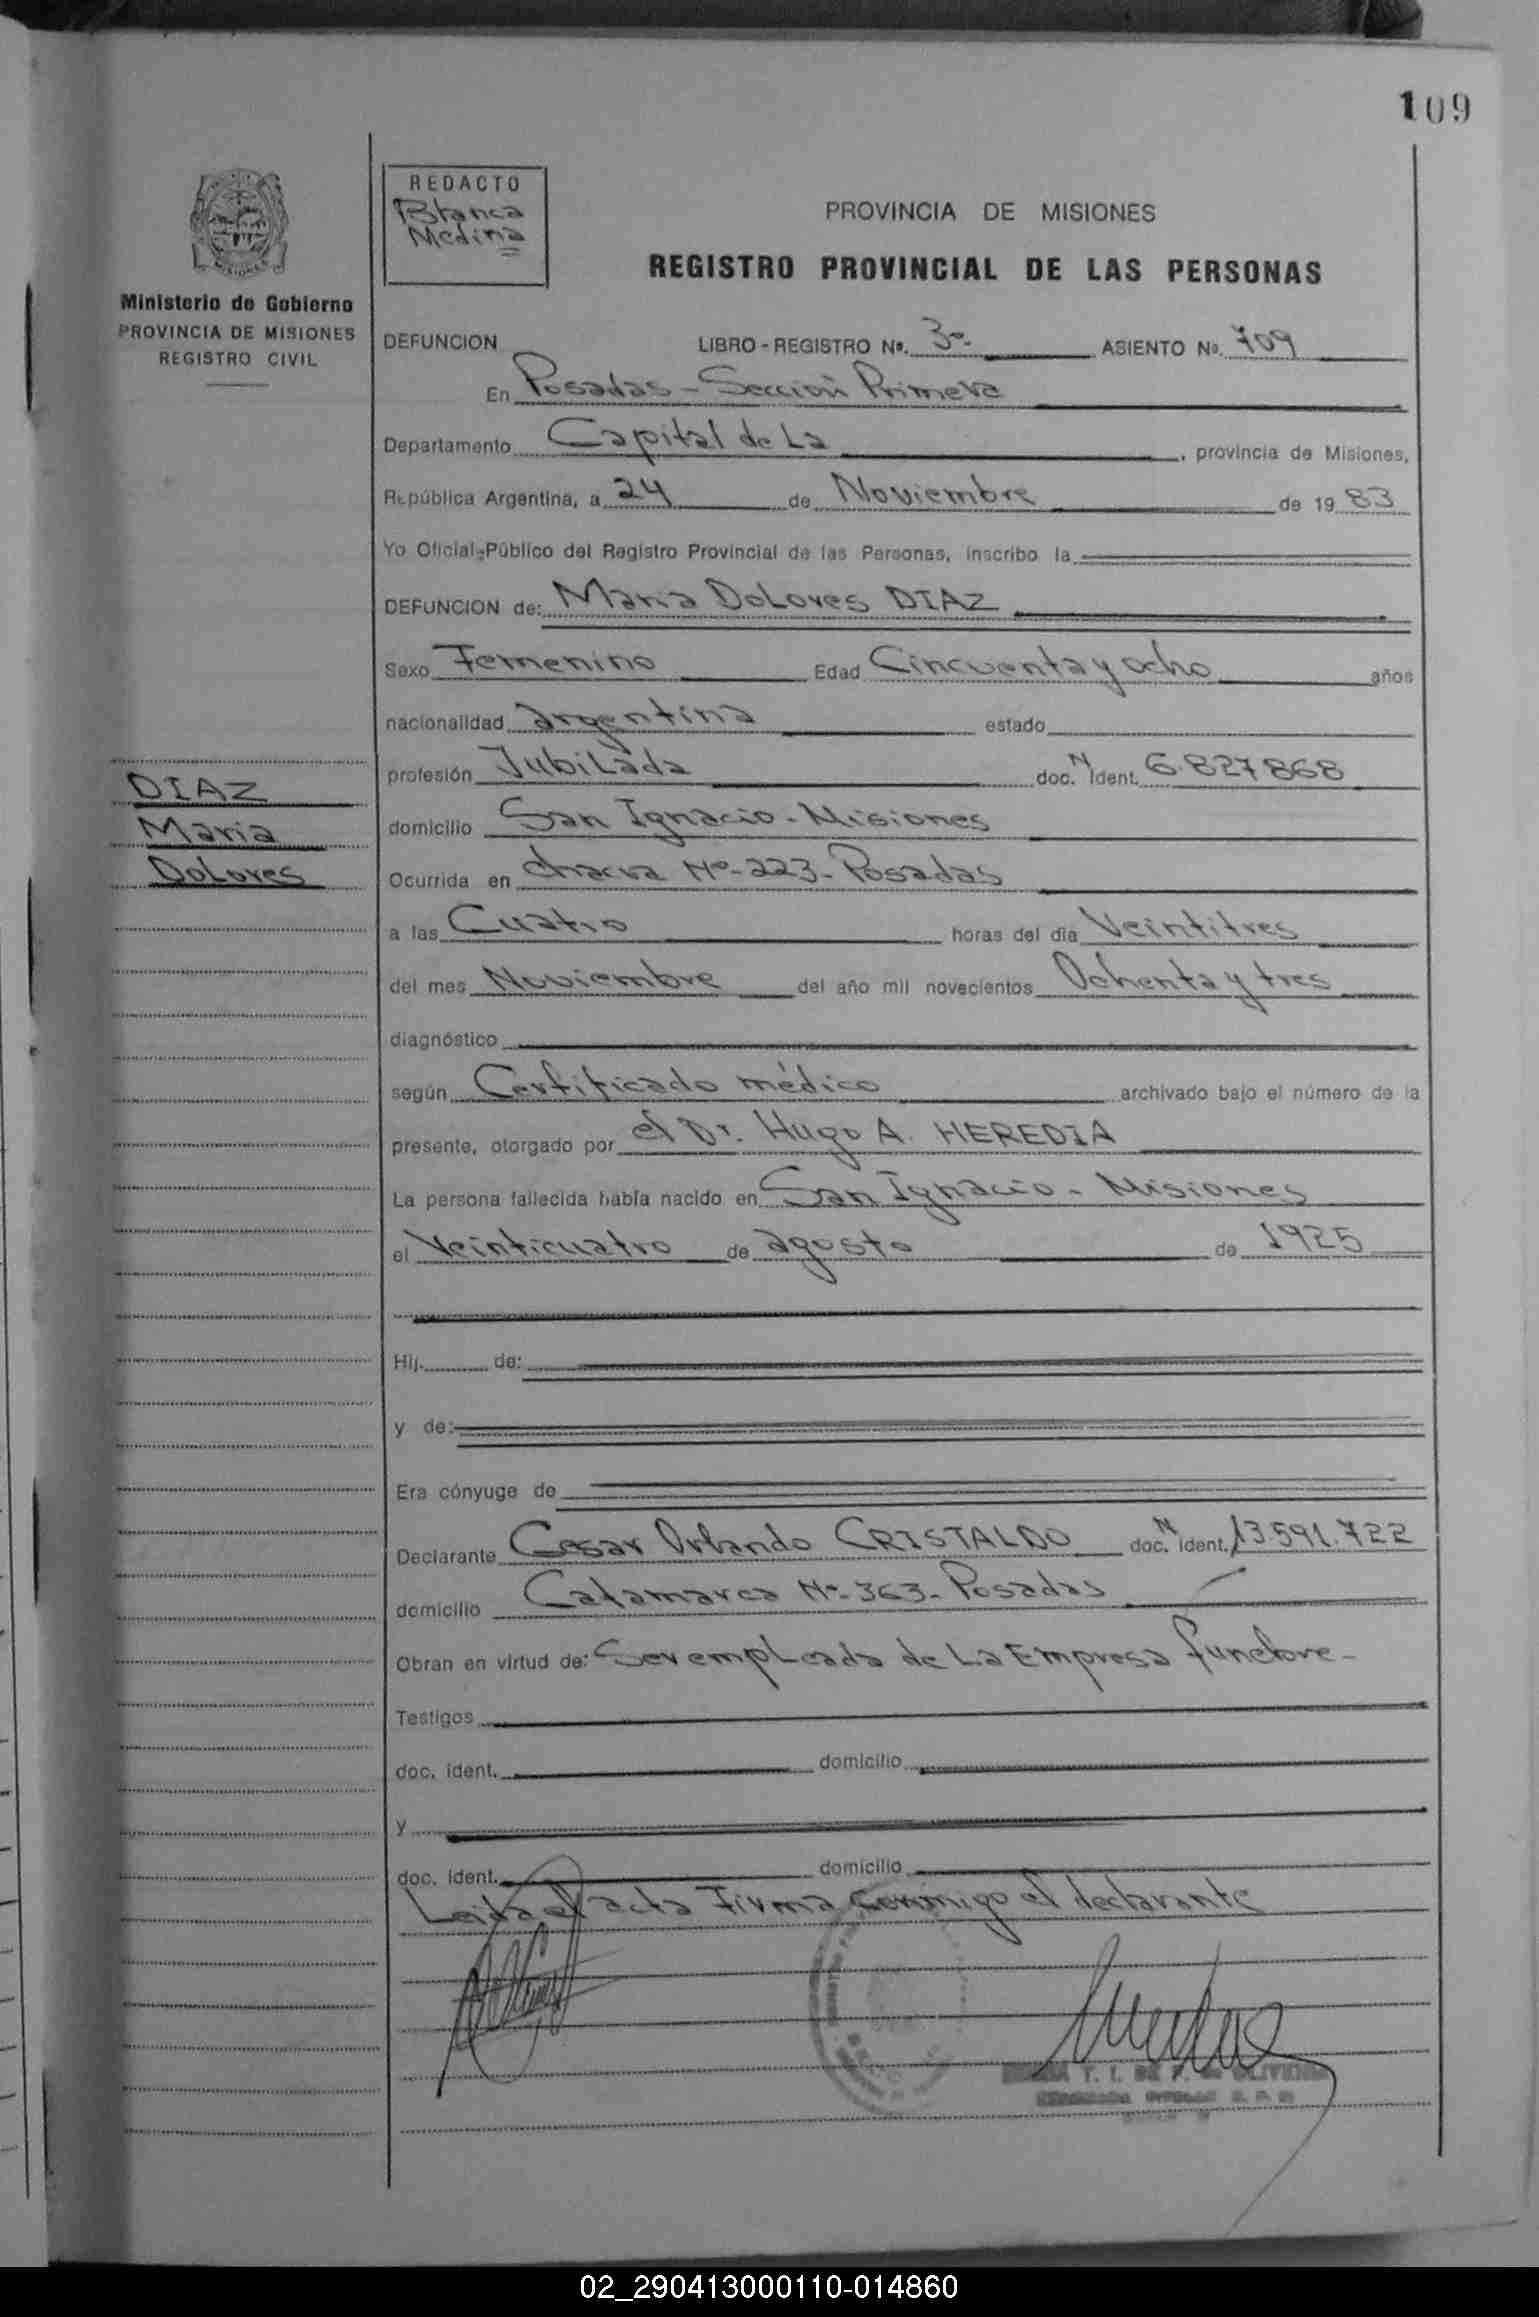 109
REDACTO
Blanca
Medina
MISIONES
Ministerio de Gobierno
PROVINCIA DE MISIONES
REGISTRO CIVIL
PROVINCIA DE MISIONES
REGISTRO PROVINCIAL DE LAS PERSONAS
DEFUNCION LIBRO - REGISTRO Nº. 3º- ASIENTO Nº. 709
En Posadas - Sección Primera
Departamento Capital de La , provincia de Misiones,
República Argentina, a 24 de Noviembre de 19 83
Yo Oficial Público del Registro Provincial de las Personas, inscribo la
DEFUNCION de: Maria Dolores DIAZ
Sexo Femenino Edad Cincuenta y ocho años
nacionalidad argentina estado
profesión Jubilada doc. N ident. 6.827868
domicilio San Ignacio - Misiones
Ocurrida en chacra Nº- 223- Posadas
a las Cuatro horas del día Veintitres
del mes Noviembre del año mil novecientos Ochenta y tres
diagnóstico
según Certificado médico archivado bajo el número de la
presente, otorgado por el Dr. Hugo A. HEREDIA
La persona fallecida había nacido en San Ignacio - Misiones
el Veinticuatro de agosto de 1925
Hij. de:
y de:
Era cónyuge de
Declarante Cesar Orlando CRISTALDO doc. N ident. 13.591.722
domicilio Catamarca Nº- 363- Posadas
Obran en virtud de: Ser empleado de La Empresa funebre -
Testigos
doc. ident. domicilio
y
doc. ident. domicilio
Leida el acta Firma conmigo el declarante
DIAZ
Maria
Dolores
02_290413000110-014860